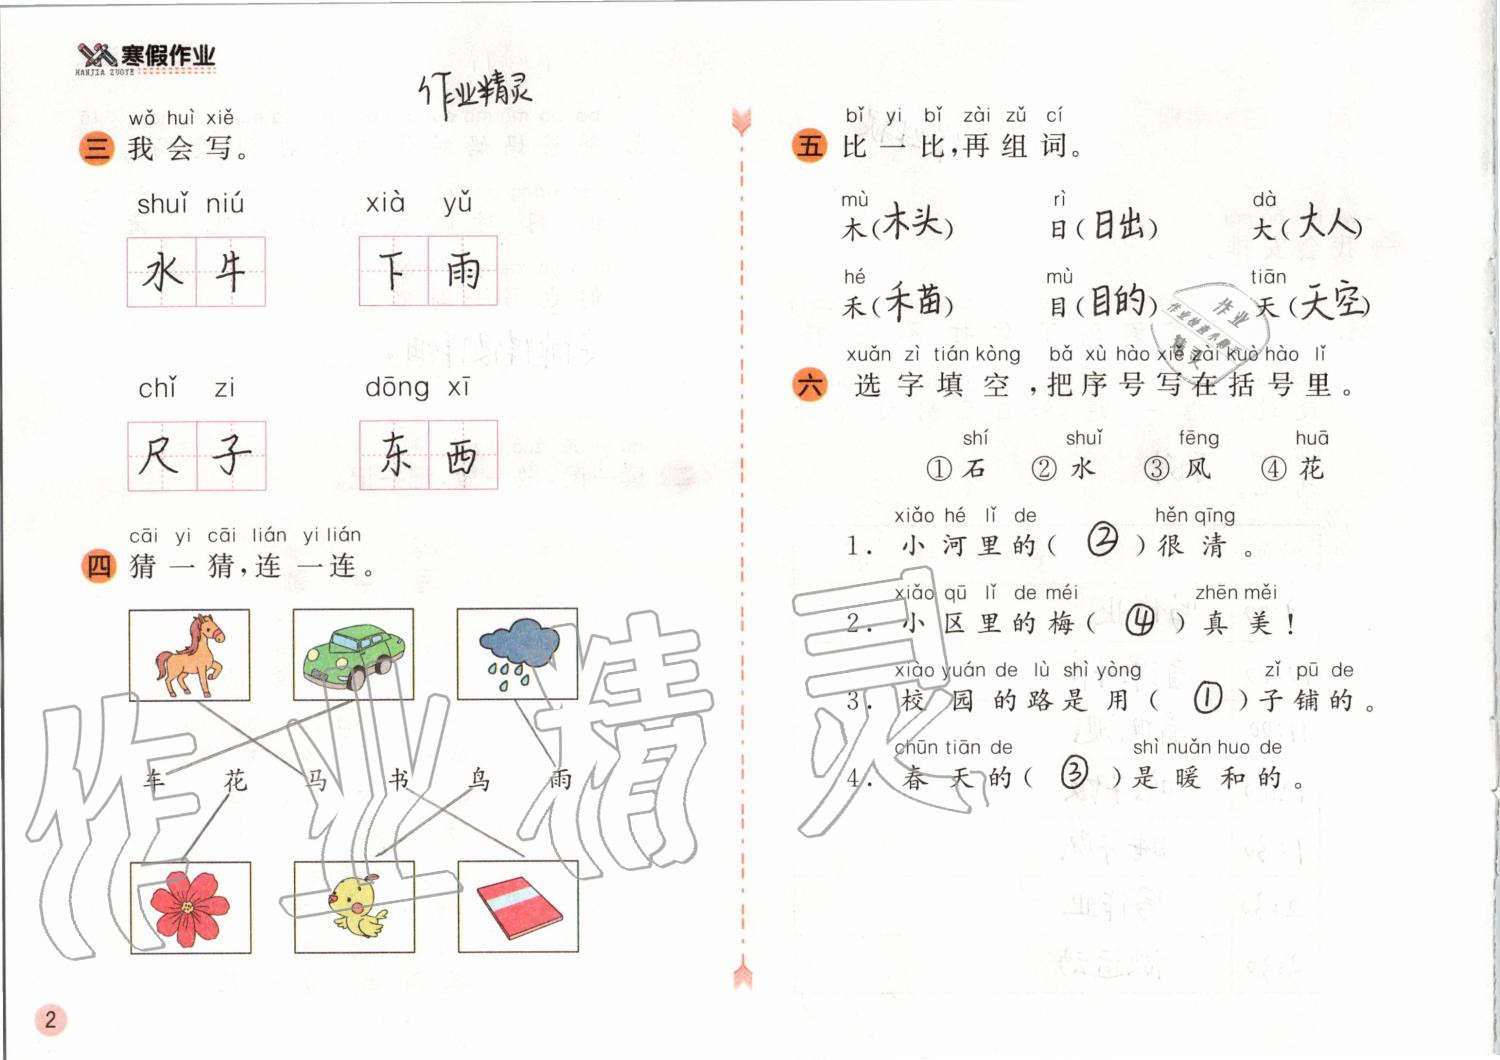 寒假作业
HANJIA ZUOYE
作业精灵
wǒ huì xiě
三 我会写。
shuǐ niú xià yǔ
水牛 下雨
chǐ zi dōng xī
尺子 东西
cāi yi cāi lián yi lián
四 猜一猜,连一连。
车 花 马 书 鸟 雨
2
bǐ yi bǐ zài zǔ cí
五 比一比,再组词。
mù rì dà
木(木头) 日(日出) 大(大人)
hé mù tiān
禾(禾苗) 目(目的) 天(天空)
xuǎn zì tián kòng bǎ xù hào xiě zài kuò hào lǐ
六 选字填空,把序号写在括号里。
shí shuǐ fēng huā
①石 ②水 ③风 ④花
xiǎo hé lǐ de hěn qīng
1. 小河里的( ② )很清。
xiǎo qū lǐ de méi zhēn měi
2. 小区里的梅( ④ )真美!
xiào yuán de lù shì yòng zǐ pū de
3. 校园的路是用( ① )子铺的。
chūn tiān de shì nuǎn huo de
4. 春天的( ③ )是暖和的。
作业精灵
作业
精灵